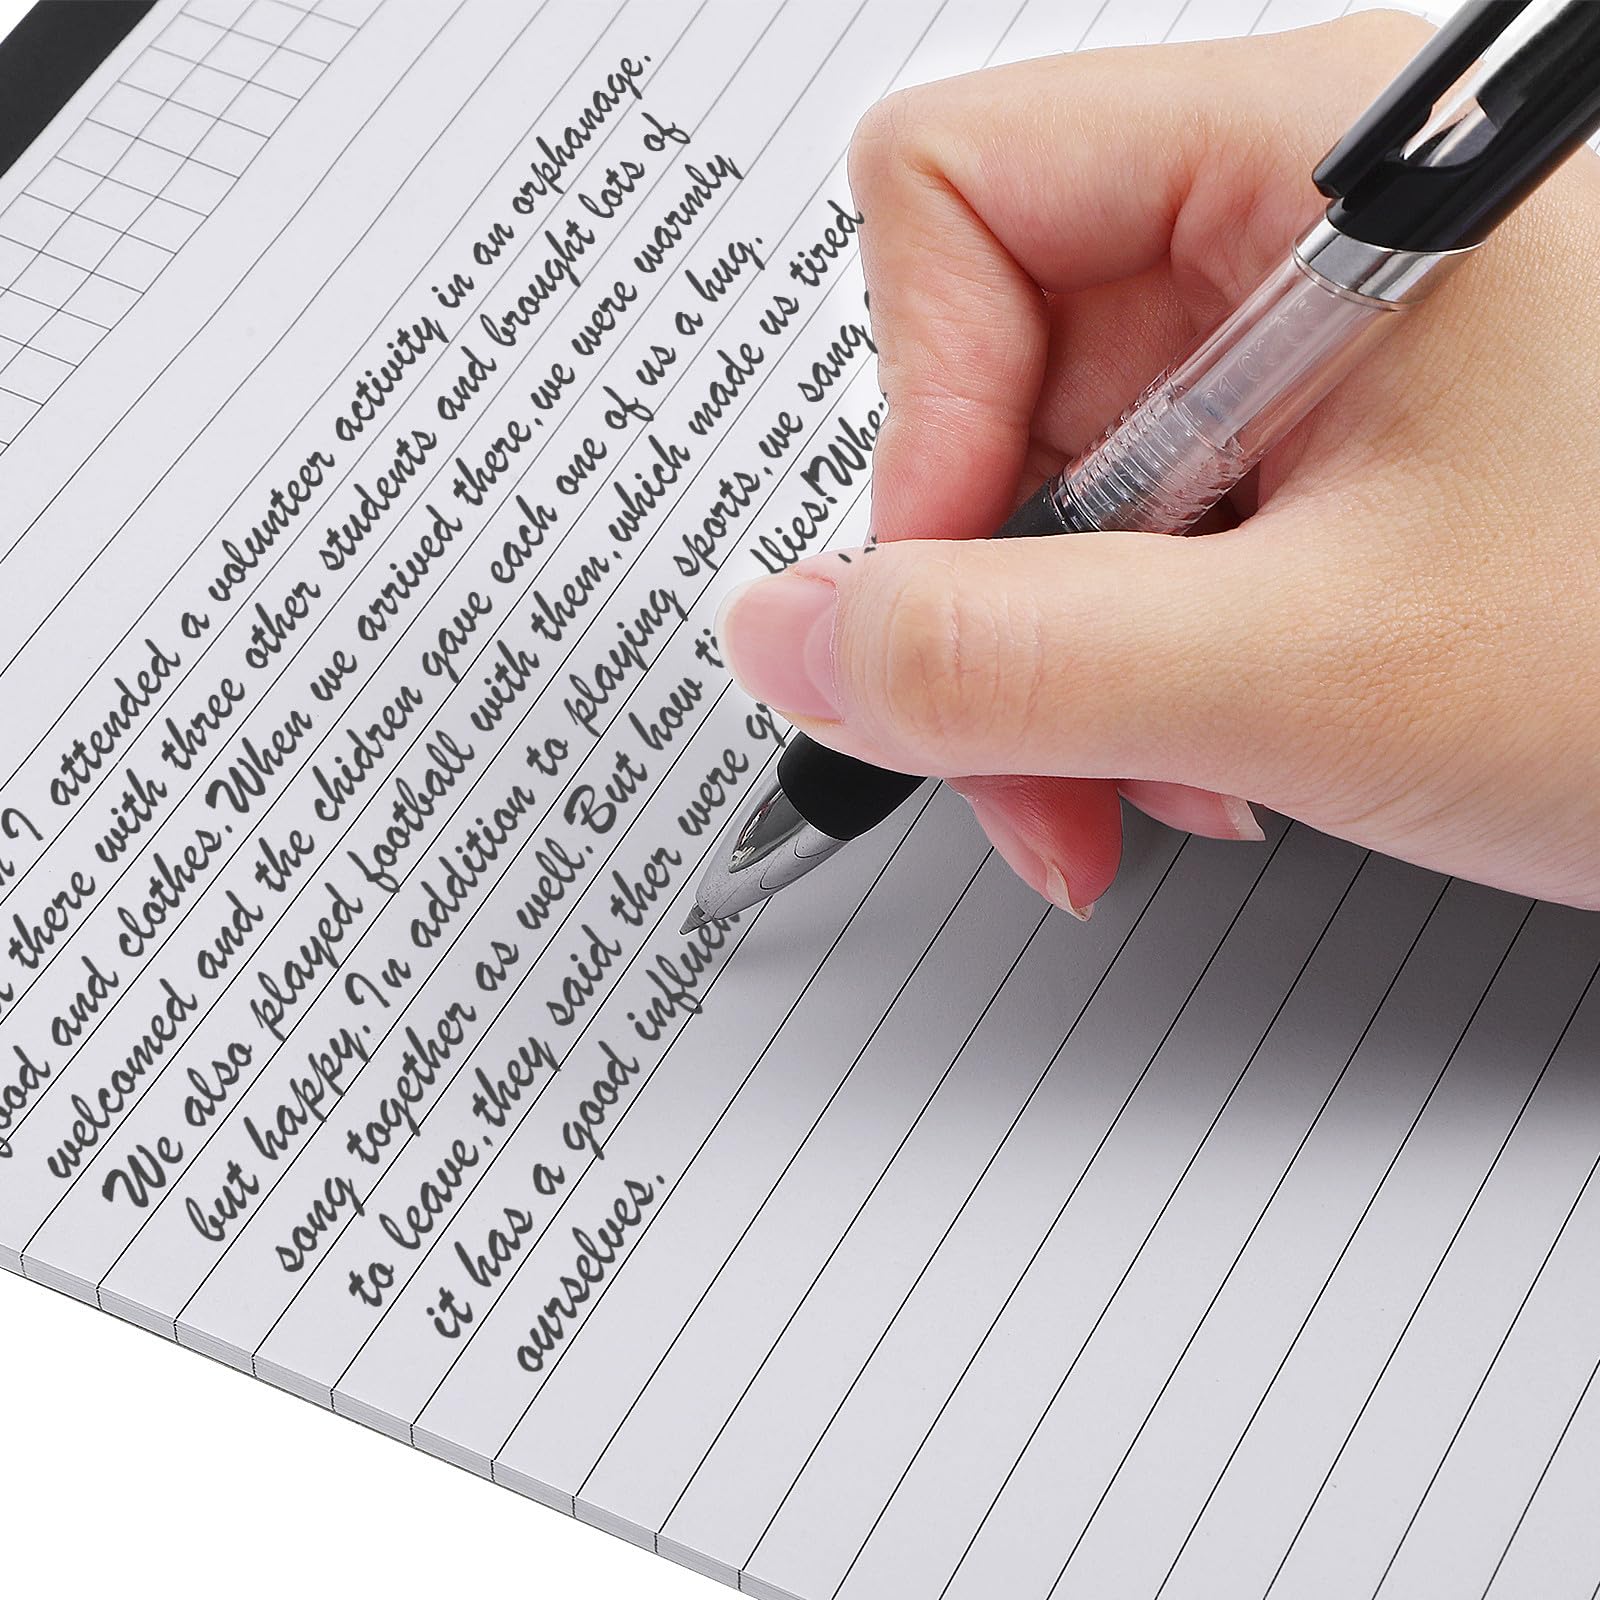 I attended a volunteer activity in an orphanage.
there with three other students and brought lots of
and clothes. When we arrived there, we were warmly
welcomed and the chidren gave each one of us a hug.
We also played football with them, which made us tired
but happy. In addition to playing sports, we sang
song together as well. But how
to leave, they said ther were
it has a good
ourselves.